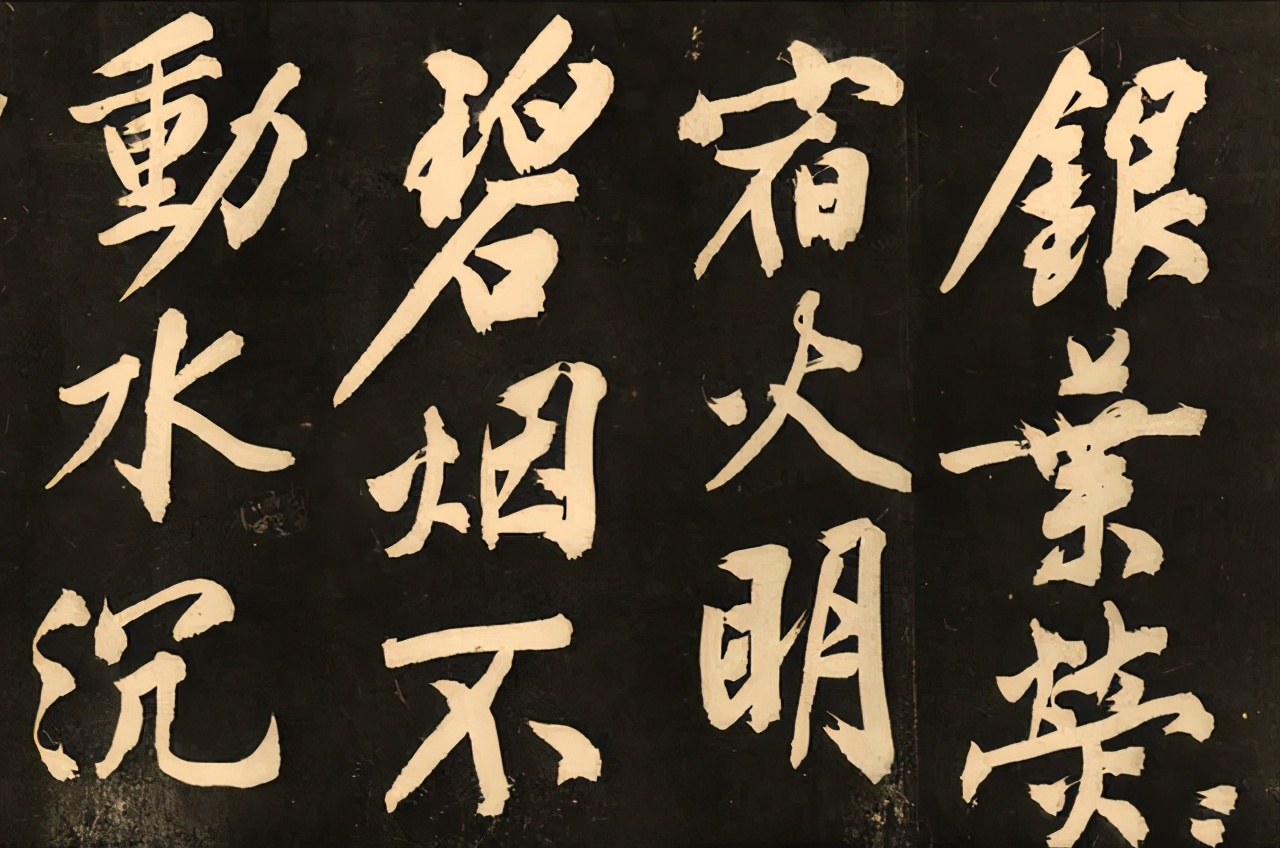 銀葉熒々
宿火明
碧烟不
動水沉